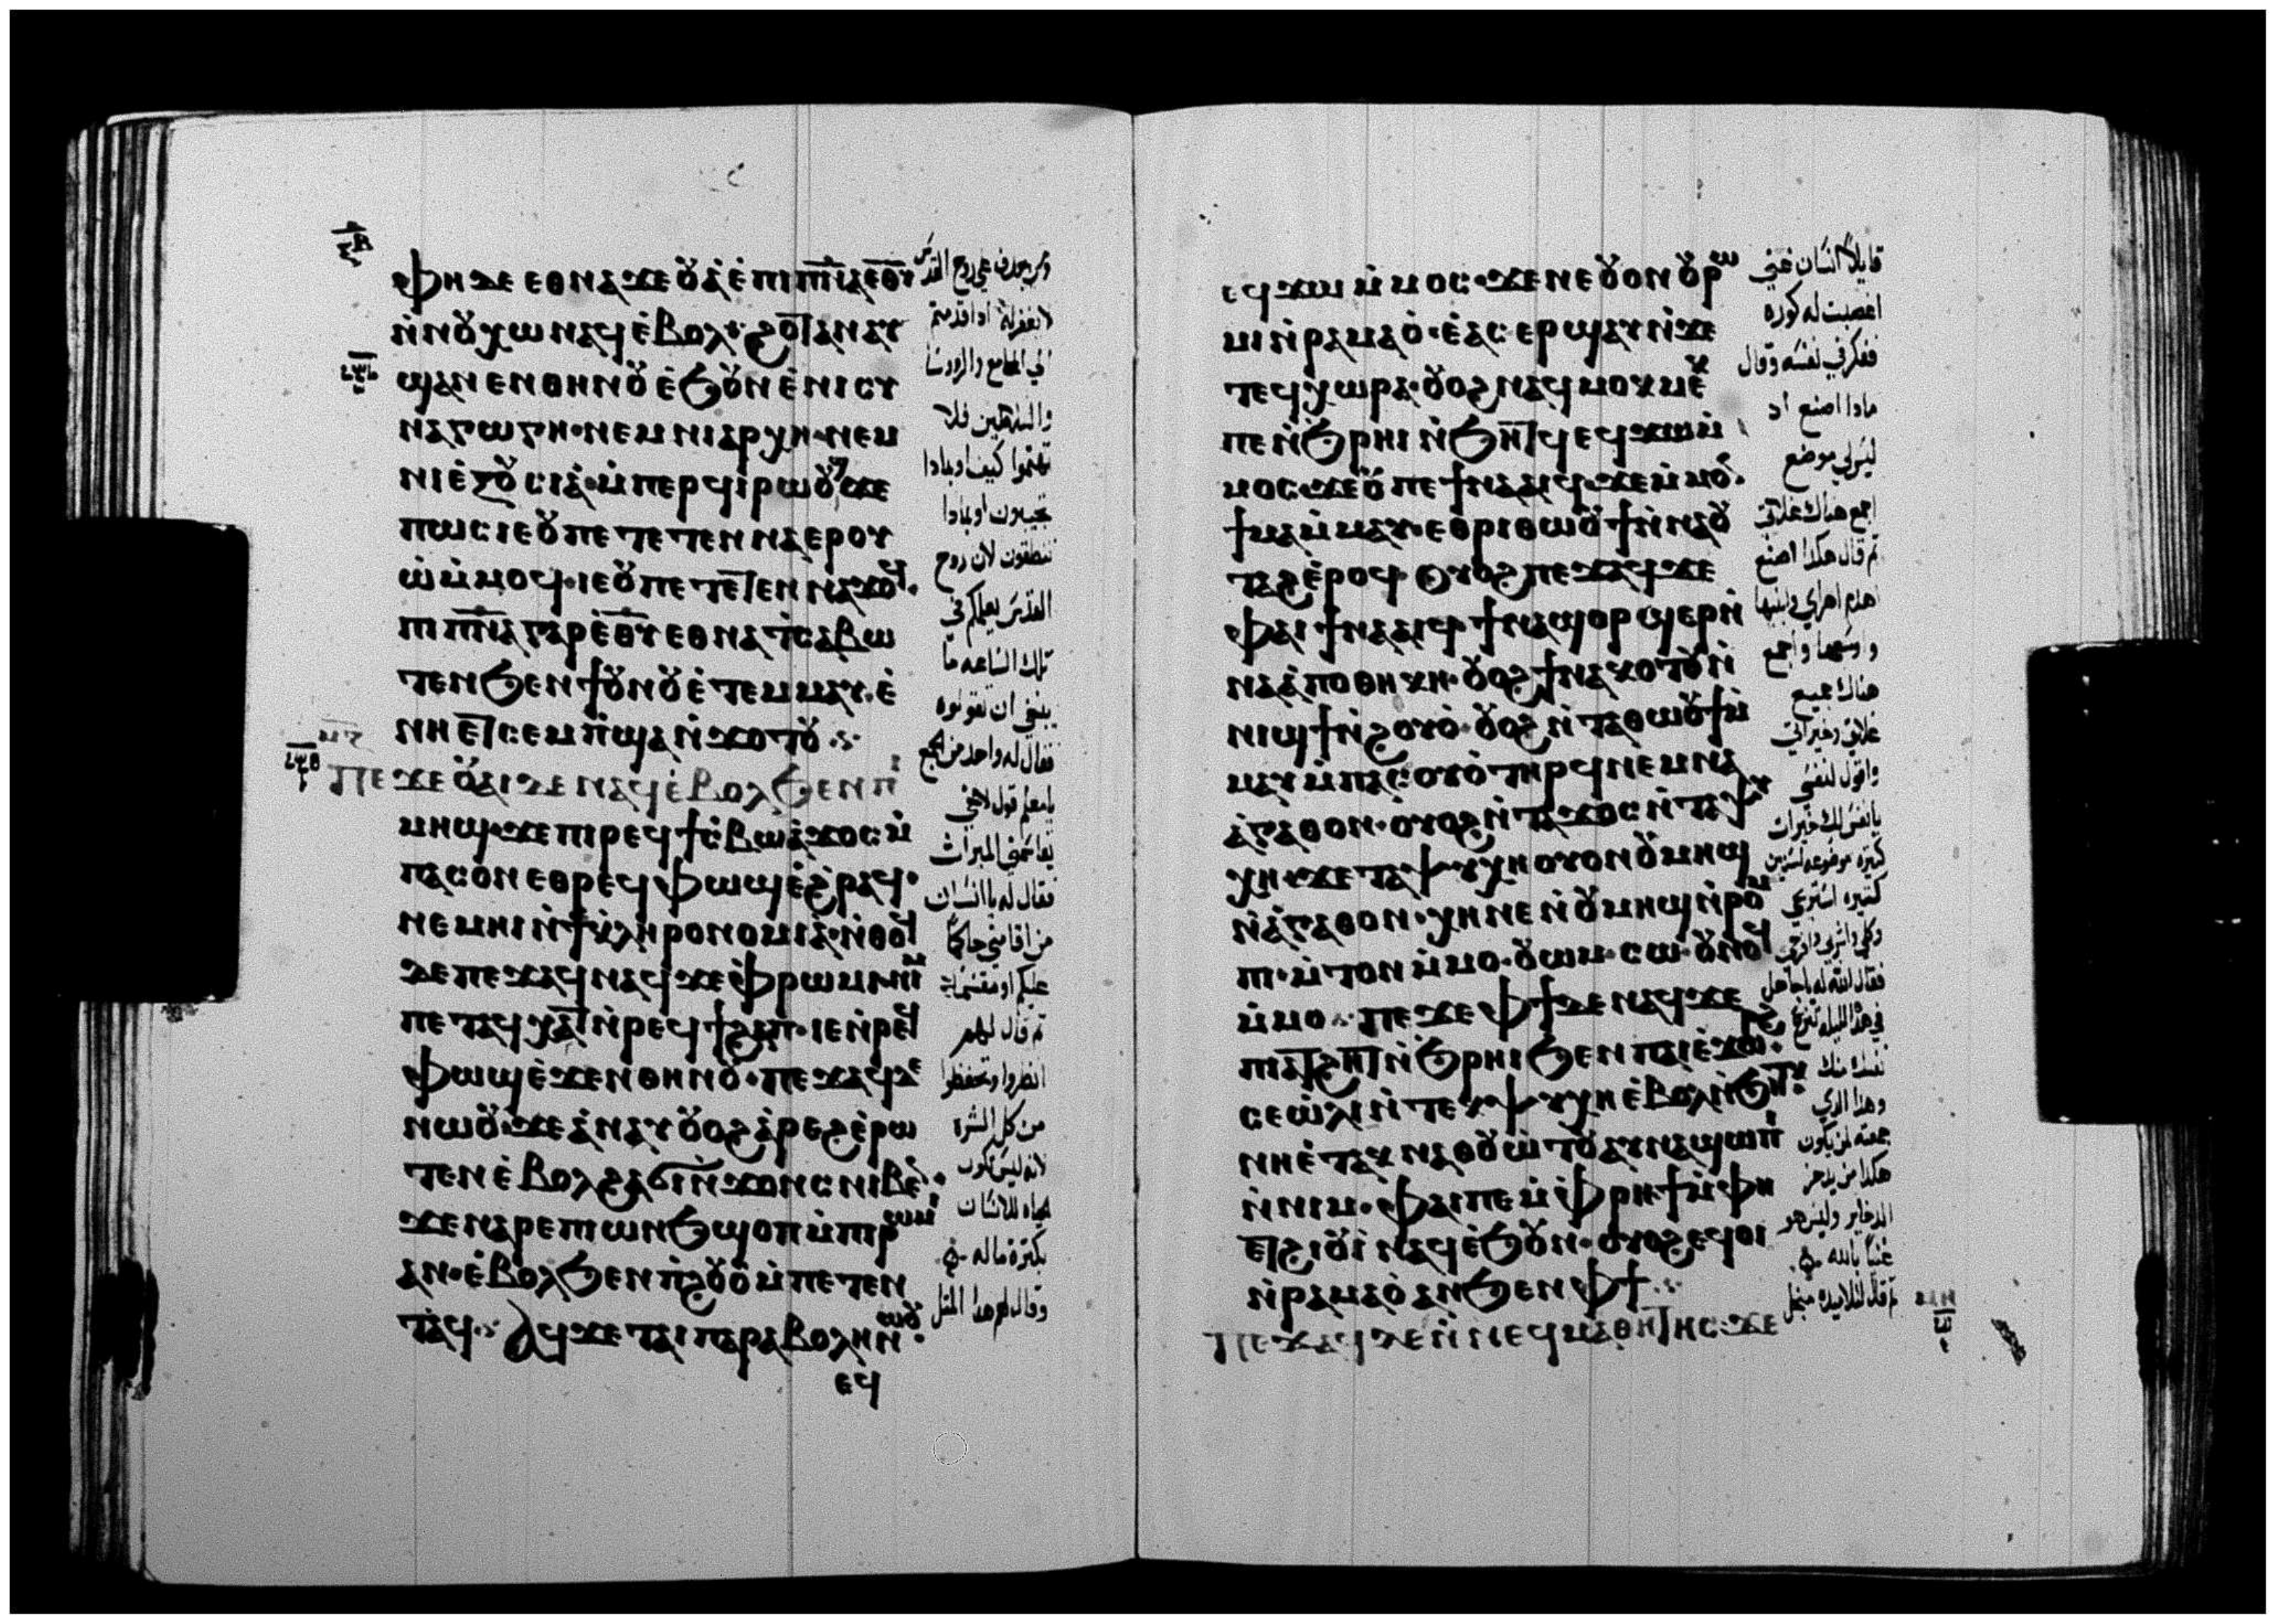 ⲫⲏ ⲇⲉ ⲉⲑⲛⲁϫⲉ ⲟ⩑ⲁ̀ ⲉ̀ⲡⲓⲡ̅ⲛ̅ⲁ̅ ⲉ̅ⲑ̅ⲩ̅
ⲛ̀ⲛⲟ⩑ⲭⲱ ⲛⲁϥ ⲉ̀ⲃⲟⲗ· ϩⲟⲧⲁⲛ ⲁⲩ
ϣⲁⲛⲉⲛ ⲑⲏⲛⲟ⩑ ⲉ̀ϧⲟ⩑ⲛ ⲉ̀ⲛⲓⲥⲩ
ⲛⲁⲅⲱⲅⲏ· ⲛⲉⲙ ⲛⲓⲁⲣⲭⲏ· ⲛⲉⲙ
ⲛⲓⲉ̀ⲝⲟ⩑ⲥⲓⲁ̀· ⲙ̀ⲡⲉⲣϥⲓⲣⲱⲟ⩑ϣ ϫⲉ
ⲡⲱⲥ ⲓⲉ ⲟ⩑ ⲡⲉ ⲧⲉⲧⲉⲛⲛⲁⲉⲣⲟⲩ
ⲱ̀ ⲙ̀ⲙⲟϥ· ⲓⲉ ⲟ⩑ ⲡⲉ ⲧⲉⲧⲉⲛⲛⲁϫⲟϥ·
ⲡⲓⲡ̅ⲛ̅ⲁ̅ ⲅⲁⲣ ⲉ̅ⲑ̅ⲩ̅ ⲉⲑⲛⲁⲧ̀ⲥⲁⲃⲱ
ⲧⲉⲛ ϧⲉⲛ ϯⲟ⩑ⲛⲟ⩑ ⲉ̀ⲧⲉⲙⲙⲁⲩ· ⲉ̀
ⲛⲏ ⲉⲧⲥⲉⲙⲡ̀ϣⲁ ⲛ̀ϫⲟⲧⲟ⩑
ⲡⲉϫⲉ ⲟ⩑ⲁⲓ ⲇⲉ ⲛⲁϥ ⲉ̀ⲃⲟⲗ ϧⲉⲛ ⲡⲓ
ⲙⲏϣ· ϫⲉ ⲡⲓⲣⲉϥϯⲥ̀ⲃⲱ ⲁ̀ϫⲟⲥ ⲙ̀
ⲡⲁⲥⲟⲛ ⲉⲑⲣⲉϥⲫⲱϣ ⲉ̀ϩⲣⲁϥ·
ⲛⲉⲙⲏⲓ ⲛ̀ϯⲕ̀ⲗⲏⲣⲟⲛⲟⲙⲓⲁ̀· ⲛ̀ⲑⲟϥ
ⲇⲉ ⲡⲉϫⲁϥ ⲛⲁϥ ϫⲉ ⲫ̀ⲣⲱⲙⲓ ⲛⲓⲙ
ⲡⲉⲧⲁϥⲭⲁⲧ ⲛ̀ⲣⲉϥϯϩⲁⲡ· ⲓⲉ ⲛ̀ⲣⲉϥ
ⲫⲱϣ ⲉ̀ϫⲉⲛ ⲑⲏⲛⲟ⩑· ⲡⲉϫⲁϥ ⲇⲉ
ⲛⲱⲟ⩑· ϫⲉ ⲁ̀ⲛⲁⲩ ⲟ⩑ⲟϩ ⲁ̀ⲣⲉϩ ⲉ̀ⲣⲱ
ⲧⲉⲛ ⲉ̀ⲃⲟⲗϩⲁ ϭⲓⲛ̀ϫⲟⲛⲥ ⲛⲓⲃⲉⲛ·
ϫⲉ ⲛⲁⲣⲉ ⲡⲱⲛϧ ϣⲟⲡ ⲙ̀ⲡⲓⲣⲱⲙⲓ
ⲁⲛ· ⲉ̀ⲃⲟⲗ ϧⲉⲛ ⲡ̀ϩⲟ⩑ⲟ̀ ⲙ̀ⲡⲉⲧⲉⲛ
ⲧⲁϥ· ⲁϥϫⲉ ⲧⲁⲓⲡⲁⲣⲁⲃⲟⲗⲏ ⲛⲱⲟ⩑·
ⲉϥ
لا يغفر له اذا قدمتم
في المجامع والروسا
والسلاطين فلا
تهتموا كيف او بماذا
تجيبون او بماذا
تنطقون لان روح
القدس يعلمكم في
تلك الساعه ما
ينبغي ان تقولوه
فقال له واحد من الجمع
يامعلم قول لاخي
يقاسمني الميراث
فقال له يا انسان
من اقامني حاكمًا
عليكم او مقسمًا
ثم قال لهم
انظروا وتحفظوا
من كل الشره
لانه ليس تكون
الحياه للانسان
بكثرة ماله
وقال لهم هذا المثل
ⲉϥϫⲱ ⲙ̀ⲙⲟⲥ· ϫⲉ ⲛⲉ ⲟ⩑ⲟⲛ ⲟ⩑ⲣⲱ
ⲙⲓ ⲛ̀ⲣⲁⲙⲁⲟ̀· ⲉ̀ⲁⲥⲉⲣϣⲁⲩ ⲛ̀ϫⲉ
ⲧⲉϥⲭⲱⲣⲁ· ⲟ⩑ⲟϩ ⲛⲁϥⲙⲟⲕⲙⲉⲕ
ⲡⲉ ⲛ̀ϧⲣⲏⲓ ⲛ̀ϧⲏⲧϥ ⲉϥϫⲱ ⲙ̀
ⲙⲟⲥ· ϫⲉ ⲟ⩑ ⲡⲉϯⲛⲁⲁⲓϥ· ϫⲉ ⲙ̀ⲙⲟⲛ·
ϯⲙⲁ ⲙ̀ⲙⲁⲩ· ⲉⲑⲣⲓⲑⲱⲟ⩑ϯ ⲛ̀ⲛⲁⲟ⩑
ⲧⲁϩ ⲉ̀ⲣⲟϥ· ⲟⲩⲟϩ ⲡⲉϫⲁϥ ϫⲉ
ⲫⲁⲓ ϯⲛⲁⲁⲓϥ· ϯⲛⲁϣⲟⲣϣⲉⲣ ⲛ̀
ⲛⲁⲁ̀ⲡⲟⲑⲏⲕⲏ· ⲟ⩑ⲟϩ ϯⲛⲁⲕⲟⲧⲟ⩑ ⲛ̀
ⲛⲓϣϯ ⲛ̀ϩⲟⲩⲟ̀· ⲟ⩑ⲟϩ ⲛ̀ⲧⲁⲑⲱⲟ⩑ϯ ⲙ̀
ⲙⲁⲩ ⲙ̀ⲡⲁⲥⲟⲩⲟ̀ ⲧⲏⲣϥ ⲛⲉⲙ ⲛⲁ
ⲁ̀ⲅⲁⲑⲟⲛ· ⲟⲩⲟϩ ⲛ̀ⲧⲁϫⲟⲥ ⲛ̀ⲧⲁⲯⲩ
ⲭⲏ· ϫⲉ ⲧⲁⲯⲩⲭⲏ ⲟⲩⲟⲛ ⲟ⩑ⲙⲏϣ
ⲛ̀ⲁ̀ⲅⲁⲑⲟⲛ· ⲭⲏ ⲛⲉ ⲛ̀ⲟ⩑ⲙⲏϣ ⲛ̀ⲣⲟⲙ
ⲡⲓ· ⲙ̀ⲧⲟⲛ ⲙ̀ⲙⲟ· ⲟ⩑ⲱⲙ· ⲥⲱ· ⲟ⩑ⲛⲟϥ
ⲙ̀ⲙⲟ· ⲡⲉϫⲉ ⲫϯ ⲇⲉ ⲛⲁϥ· ϫⲉ
ⲡⲓⲁⲧϩⲏⲧ ⲛ̀ϧⲣⲏⲓ ϧⲉⲛ ⲡⲁⲓⲉ̀ϫⲱⲣϩ·
ⲥⲉⲱ̀ⲗⲓ ⲛ̀ⲧⲉⲕⲯⲩⲭⲏ ⲉ̀ⲃⲟⲗ ⲛ̀ϧⲏⲧⲕ·
ⲛⲏ ⲉ̀ⲧⲁⲕⲛⲁⲑⲟ⩑ⲱ̀ⲧⲟ⩑ ⲁⲩⲛⲁϣⲱⲡⲓ
ⲛ̀ⲛⲓⲙ· ⲫⲁⲓ ⲡⲉ ⲙ̀ⲫ̀ⲣⲏϯ ⲙ̀ⲫⲏ
ⲉⲧϩⲓⲟ⩑ⲓ̀ ⲛⲁϥ ⲉ̀ϧⲟ⩑ⲛ· ⲟⲩⲟϩ ⲉϥⲟⲓ
ⲛ̀ⲣⲁⲙⲁⲟ̀ ⲁⲛ ϧⲉⲛ ⲫϯ
ⲡⲉϫⲁϥ ⲇⲉ ⲛ̀ⲛⲉϥⲙⲁⲑⲏⲧⲏⲥ· ϫⲉ
قايلاً انسان غني
اخصبت له كوره
ففكر في نفسه وقال
ماذا اصنع اذ
ليس لي موضع
اجمع هناك غلاتي
ثم قال هكذا اصنع
اهدم اهراي وابنيها
واوسعها واجمع
هناك جميع
غلاتي وخيراتي
واقول لنفسي
يانفس لك خيرات
كثيره موضوعه لسنين
كثيره استريحي
وكلي واشربي وافرحي
فقال الله له ياجاهل
في هذه الليله تنزع
نفسك منك
وهذا الذي
جمعته لمن يكون
هكذا من يدخر
الذخاير وليس هو
غنيًا بالله